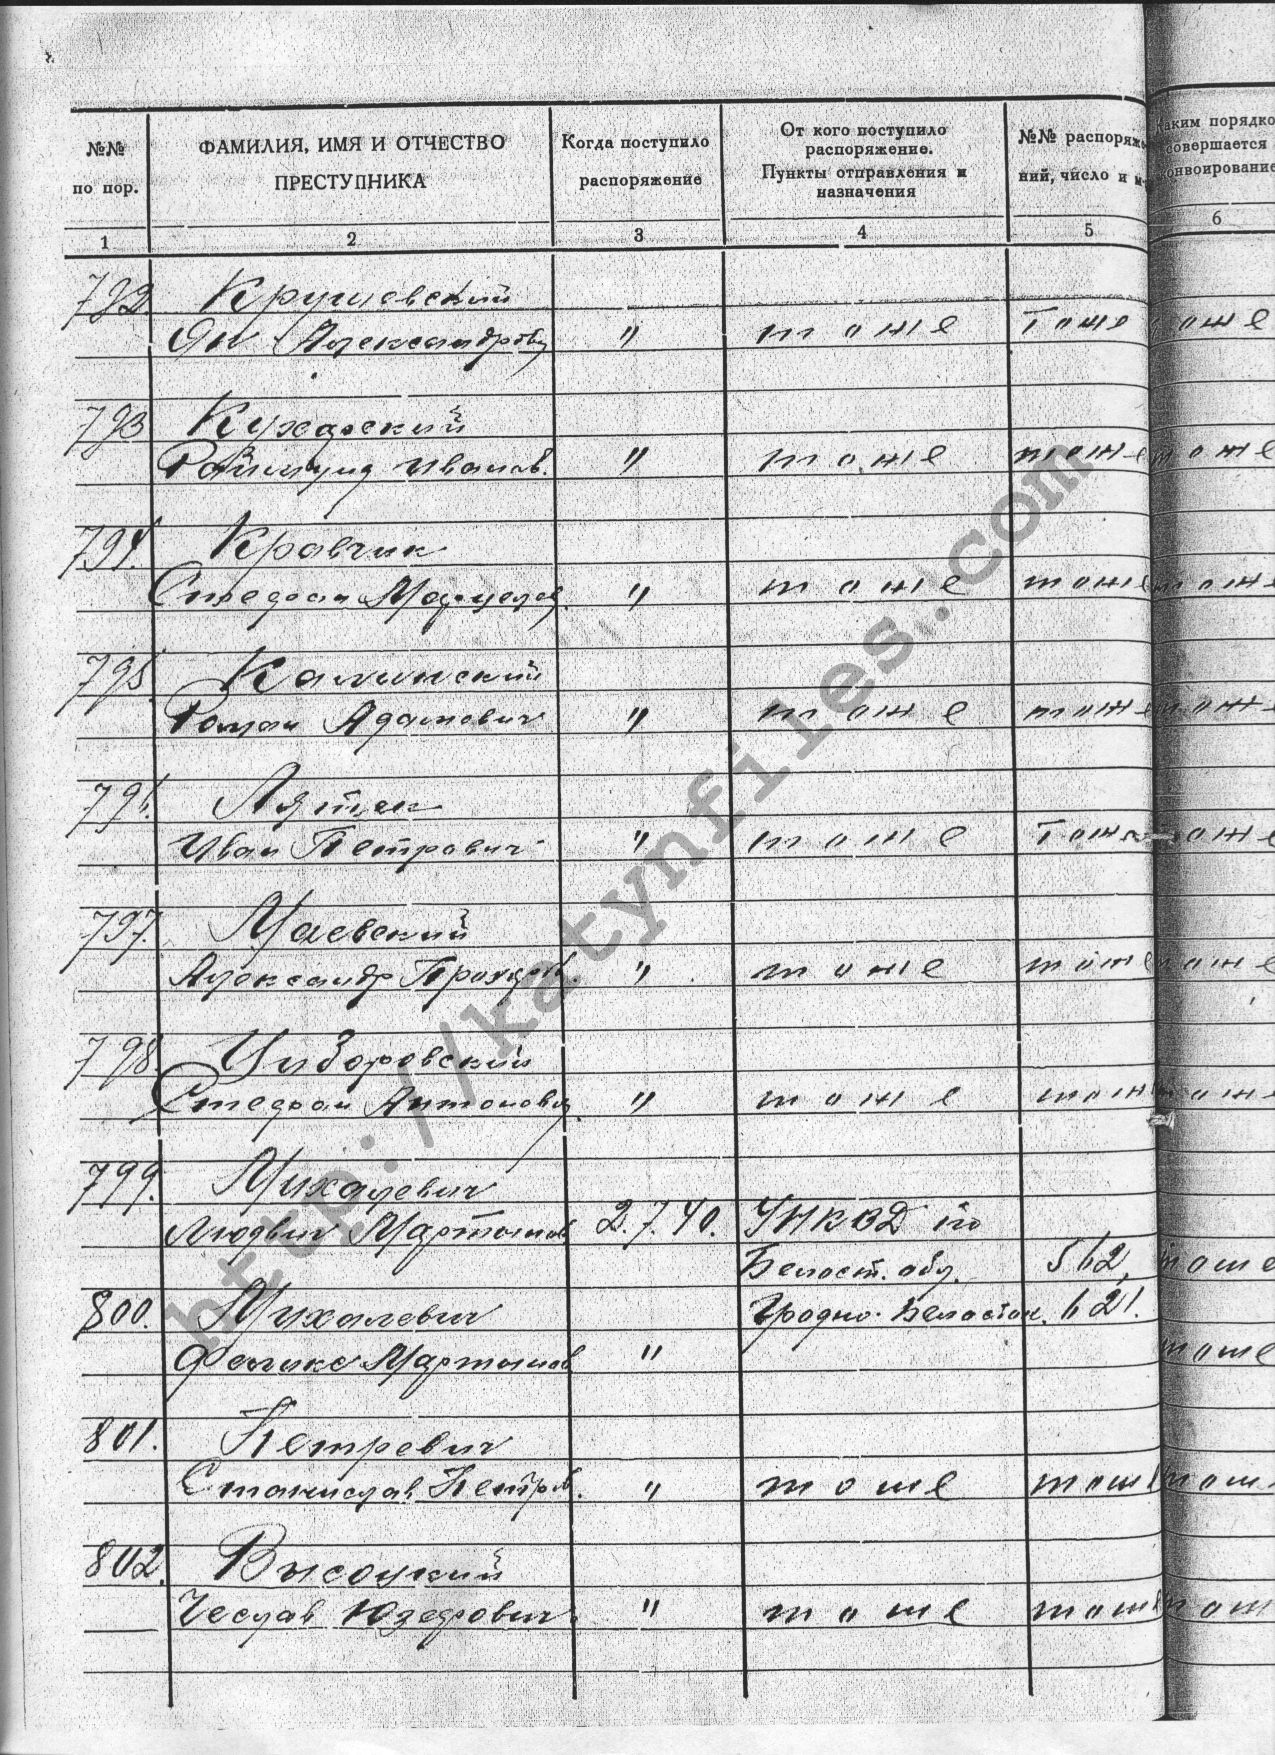 №№ по пор.
ФАМИЛИЯ, ИМЯ И ОТЧЕСТВО ПРЕСТУПНИКА
Когда поступило распоряжение
От кого поступило распоряжение. Пункты отправления и назначения
№№ распоряже
ний, число и
аким порядко
совершается
онвоирование
1 2 3 4 5 6
792. Крушевский
Ян Александров " тоже Тоже тоже
793 Кухарский
Раймунд Иванов. " тоже тоже тоже
794. Кравчик
Стефан Марцелов. " тоже тоже тоже
795 Калинский
Роман Адамович " тоже тоже тоже
796. Лятек
Иван Петрович " тоже Тоже тоже
797. Маевский
Александр " тоже тоже тоже
798. Циборовский
Стефан Антонов. " тоже тоже тоже
799. Михалевич
Людвиг Мартынов 2.7.40. УНКВД по
Белост. обл. 562, тоже
800. Михалевич Гродно-Белосток. 621.
Феликс Мартынов " тоже
801. Петревич
Станислав Петров. " тоже тоже тоже
802. Высоцкий
Чеслав Юзефович. " тоже тоже тож
http://katynfiles.com